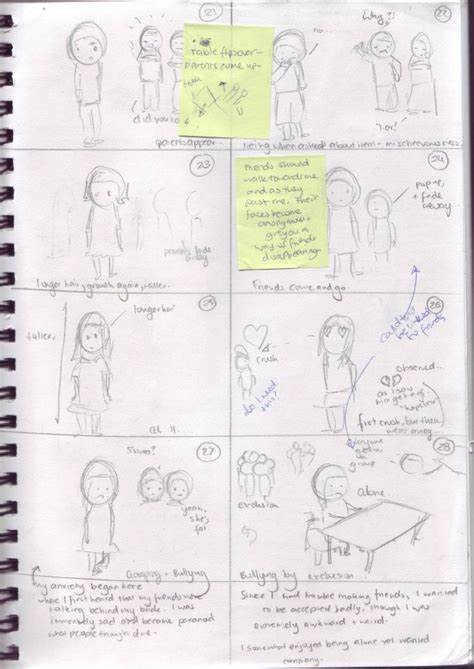 21
table flipover-
parents come up-
did you
parents appear...
22
no...
Why?!
lying when asked about them - mischievousness.
23
parents fade
away
longer hair, growth again, taller.
24
friends should
walk toward me
and as they
past me. Their
faces become
anonymous
give you a
way of friends
disappearing
pup up,
+ fade
away
Friends come and go.
25
longer hair
taller,
26
crush
do I need
this?
could this
be linked
to friends
observed...
first crush, but then
went away...
27
yeah,
she's
fat
Gossiping + Bullying
my anxiety began here
when I first heard that my friends were
talking behind my back. I was
immensely sad and became paranoid
what people thought of me.
28
Everyone
group
exclusion
alone...
Bullying by exclusion
Since I had trouble making friends, I wanted
to be accepted badly, though I was
extremely awkward + weird.
I somewhat enjoyed being alone yet wanted
company.